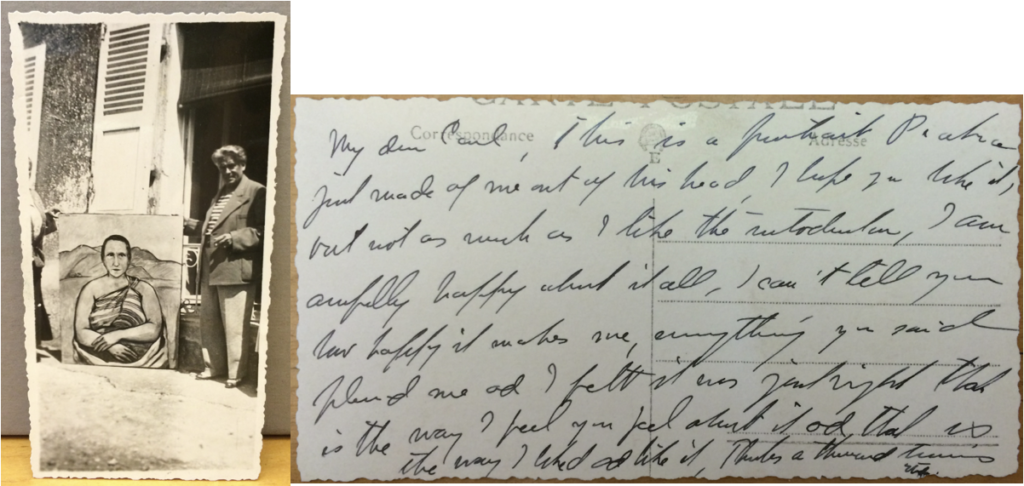 CARTE POSTALE
Correspondance
Adresse
E
My dear Paul, This is a portrait Picabia
just made of me out of his head, I hope you like it,
but not as much as I like the introduction, I am
awfully happy about it all, I can't tell you
how happy it makes me, everything you said
pleased me and I felt it was just right that
is the way I feel you feel about it and that is
the way I liked and like it, Thanks a thousand times